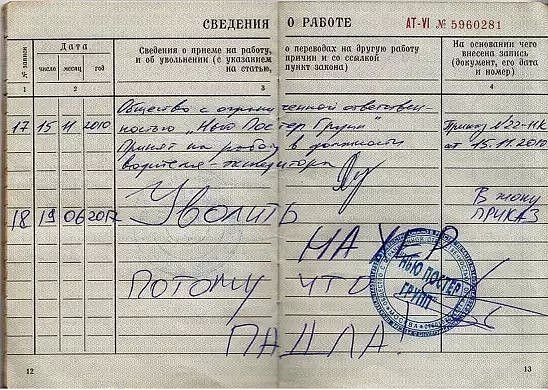 СВЕДЕНИЯ О РАБОТЕ АТ-VI № 5960281
№ записи
Дата
число месяц год
Сведения о приеме на работу, о переводах на другую работу
и об увольнении (с указанием причин и со ссылкой
на статью, пункт закона)
На основании чего
внесена запись
(документ, его дата
и номер)
1 2 3 4
Общество с ограниченной ответствен-
17 15 11 2010 ностью „Нью Постер Групп" Приказ №22-НК
Принят на работу в должности от 15.11.2010
водителя-экспедитора
18 19 06 2012 Уволить В жопу
ПРИКАЗ
НАХЕР
ПОТОМУ ЧТО
ПАДЛА!
НЬЮ ПОСТЕР
ГРУПП
МОСКВА
12 13